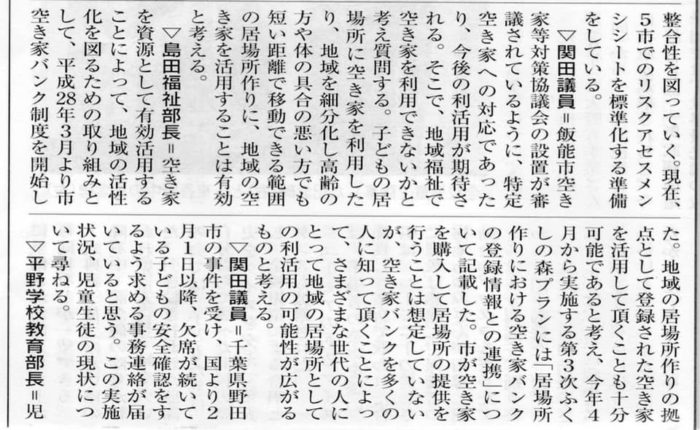 整合性を図っていく。現在、
5市でのリスクアセスメン
トシートを標準化する準備
をしている。
▽関田議員＝飯能市空き
家等対策協議会の設置が審
議されているように、特定
空き家への対応であった
り、今後の利活用が期待さ
れる。そこで、地域福祉で
空き家を利用できないかと
考え質問する。子どもの居
場所に空き家を利用した
り、地域を細分化し高齢の
方や体の具合の悪い方でも
短い距離で移動できる範囲
の居場所作りに、地域の空
き家を活用することは有効
と考える。
▽島田福祉部長＝空き家
を資源として有効活用する
ことによって、地域の活性
化を図るための取り組みと
して、平成28年3月より市
空き家バンク制度を開始し
た。地域の居場所作りの拠
点として登録された空き家
を活用して頂くことも十分
可能であると考え、今年4
月から実施する第3次ふく
しの森プランには「居場所
作りにおける空き家バンク
の登録情報との連携」につ
いて記載した。市が空き家
を購入して居場所の提供を
行うことは想定していない
が、空き家バンクを多くの
人に知って頂くことによっ
て、さまざまな世代の人に
とって地域の居場所として
の利活用の可能性が広がる
ものと考える。
▽関田議員＝千葉県野田
市の事件を受け、国より2
月1日以降、欠席が続いて
いる子どもの安全確認をす
るよう求める事務連絡が届
いていると思う。この実施
状況、児童生徒の現状につ
いて尋ねる。
▽平野学校教育部長＝児